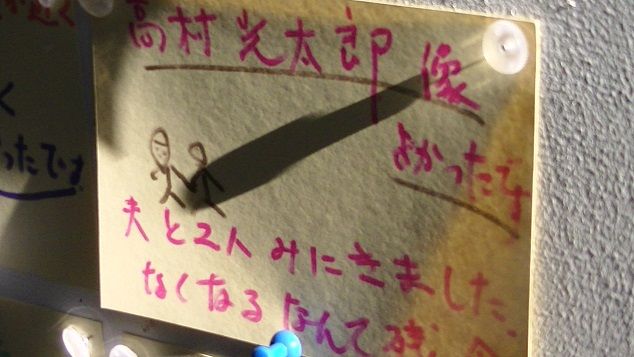 高村光太郎像
よかったです
夫と2人みにきました、
なくなるなんて残
く
ったです